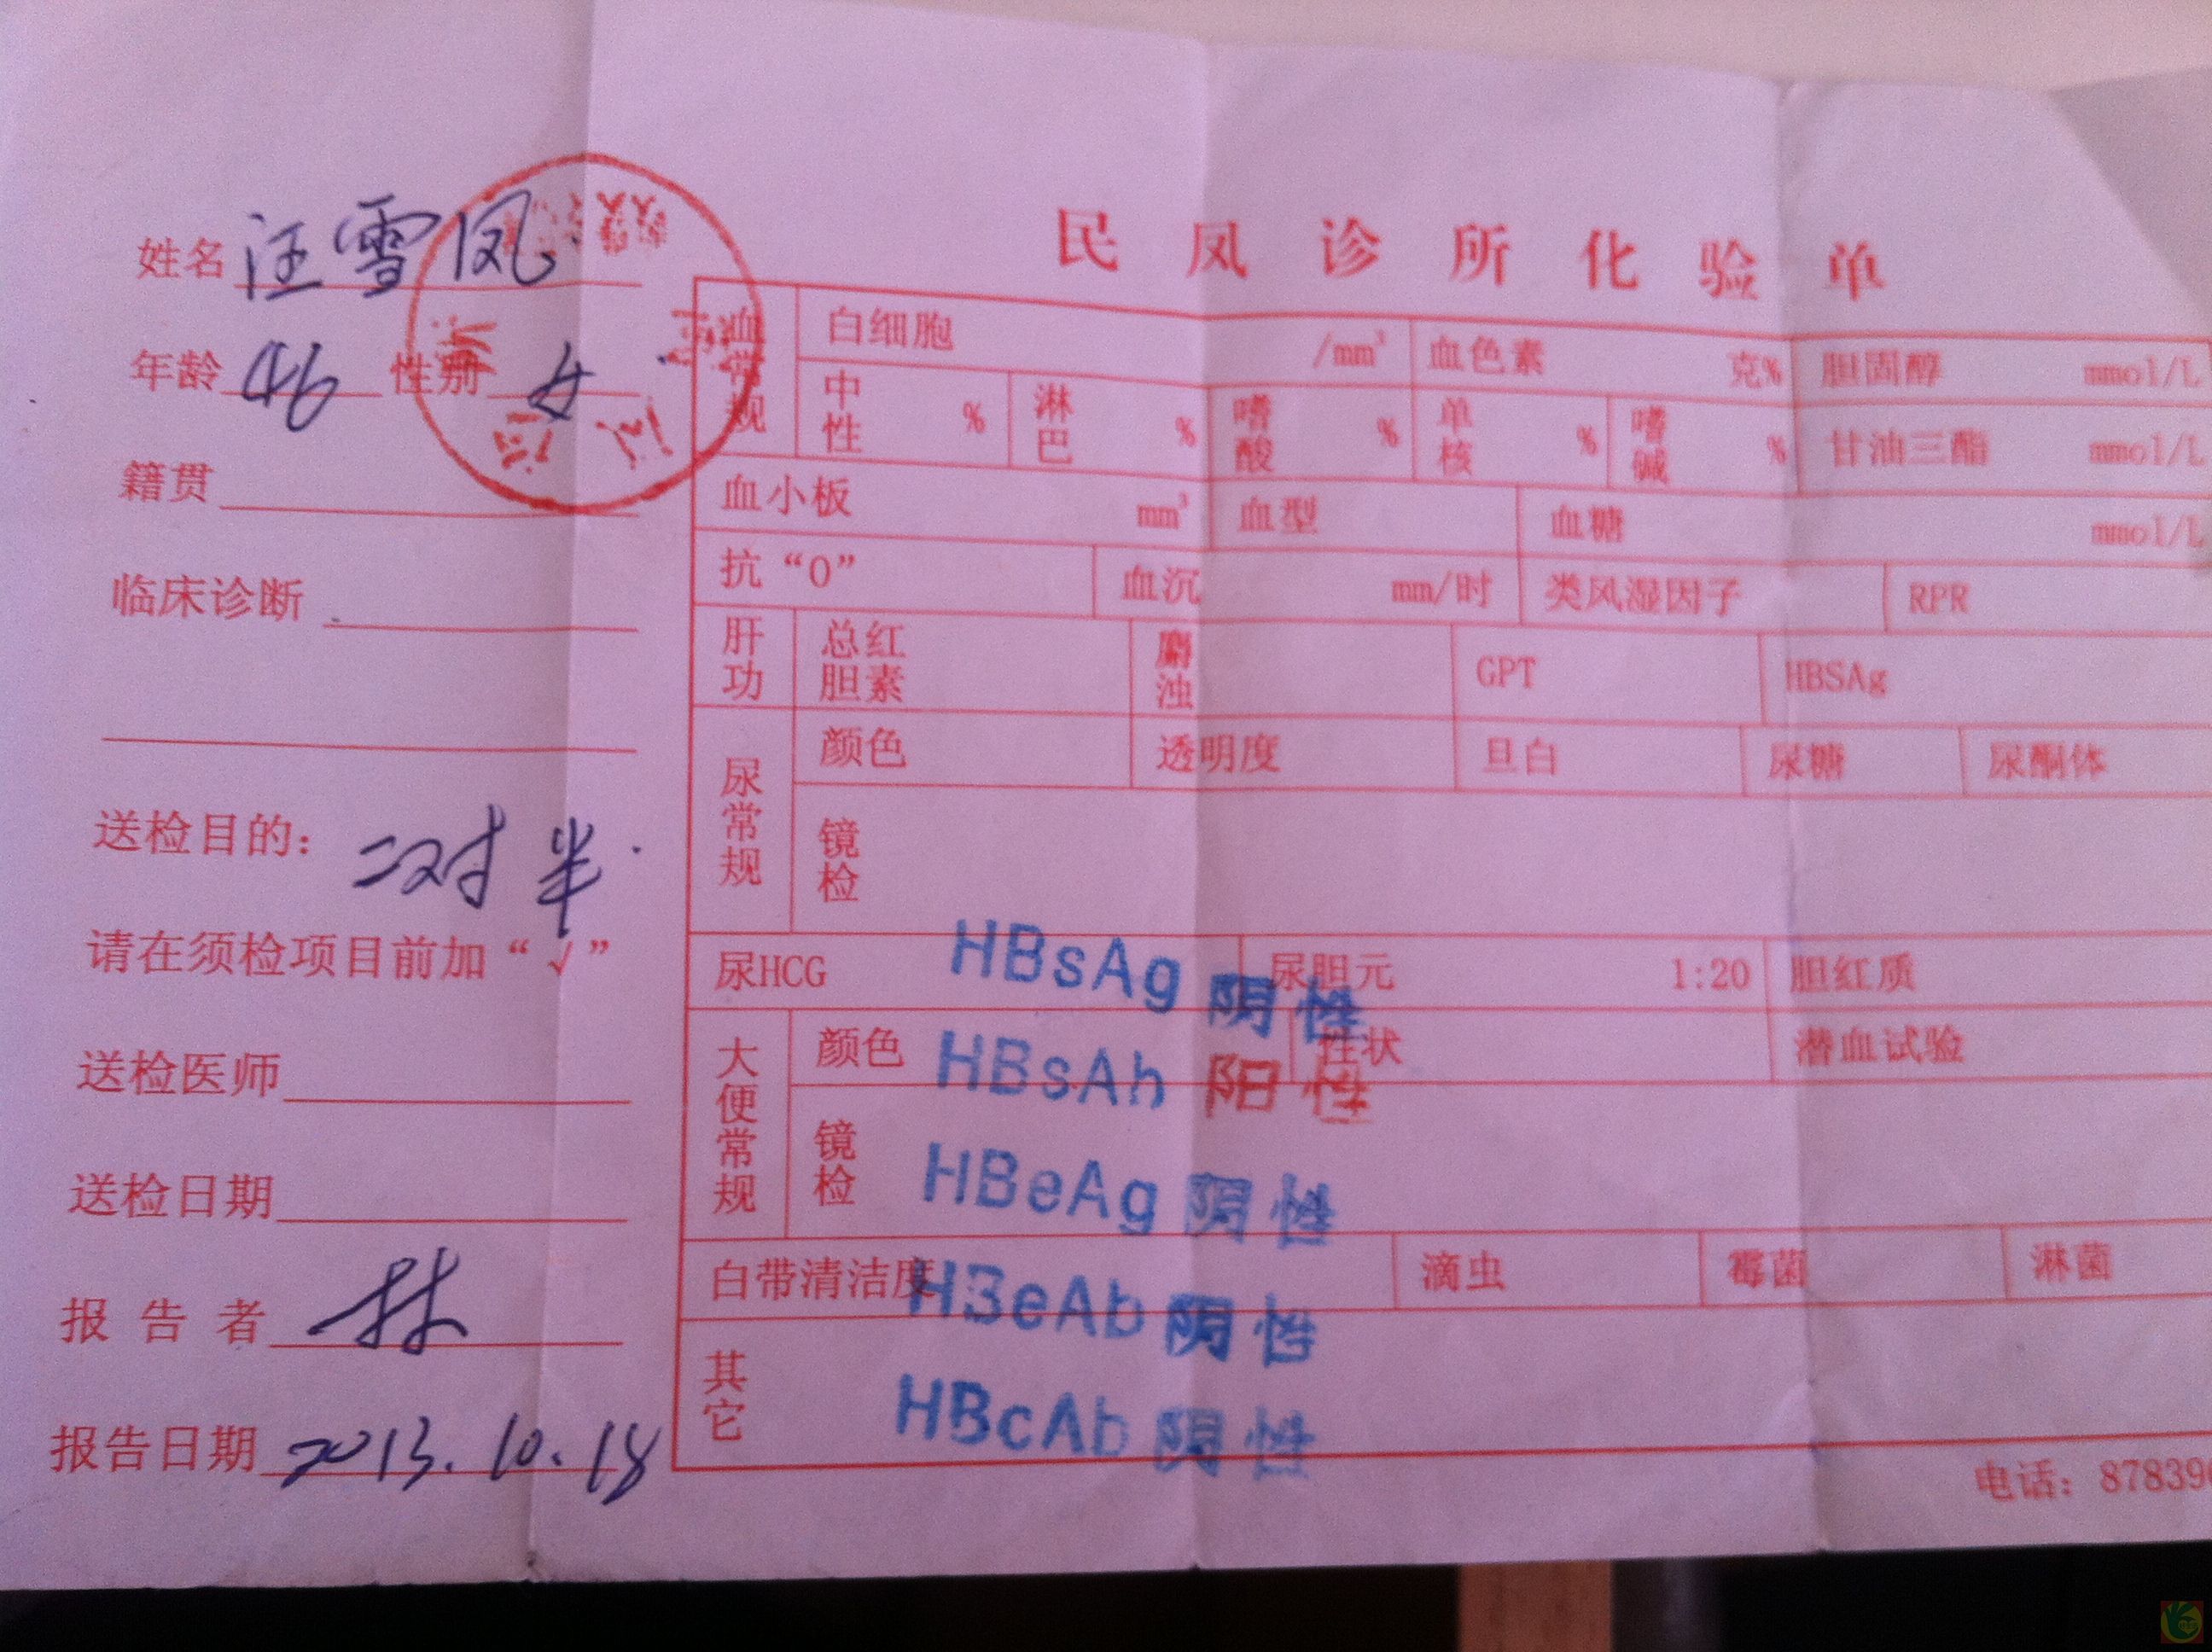 民凤诊所化验单
姓名 汪雪凤
年龄 46 性别 女
籍贯
临床诊断
送检目的: 二对半
请在须检项目前加“√”
送检医师
送检日期
报告者 林
报告日期 2013.10.18
血常规 白细胞 /mm³ 血色素 克% 胆固醇 mmol/L
中性 % 淋巴 % 嗜酸 % 单核 % 嗜碱 % 甘油三酯 mmol/L
血小板 mm³ 血型 血糖 mmol/L
抗“O” 血沉 mm/时 类风湿因子 RPR
肝功 总红胆素 麝浊 GPT HBSAg
尿常规 颜色 透明度 旦白 尿糖 尿酮体
镜检
尿HCG 尿胆元 1:20 胆红质
大便常规 颜色 性状 潜血试验
镜检
白带清洁度 滴虫 霉菌 淋菌
其它
HBsAg 阴性
HBsAb 阳性
HBeAg 阴性
HBeAb 阴性
HBcAb 阴性
电话: 87839